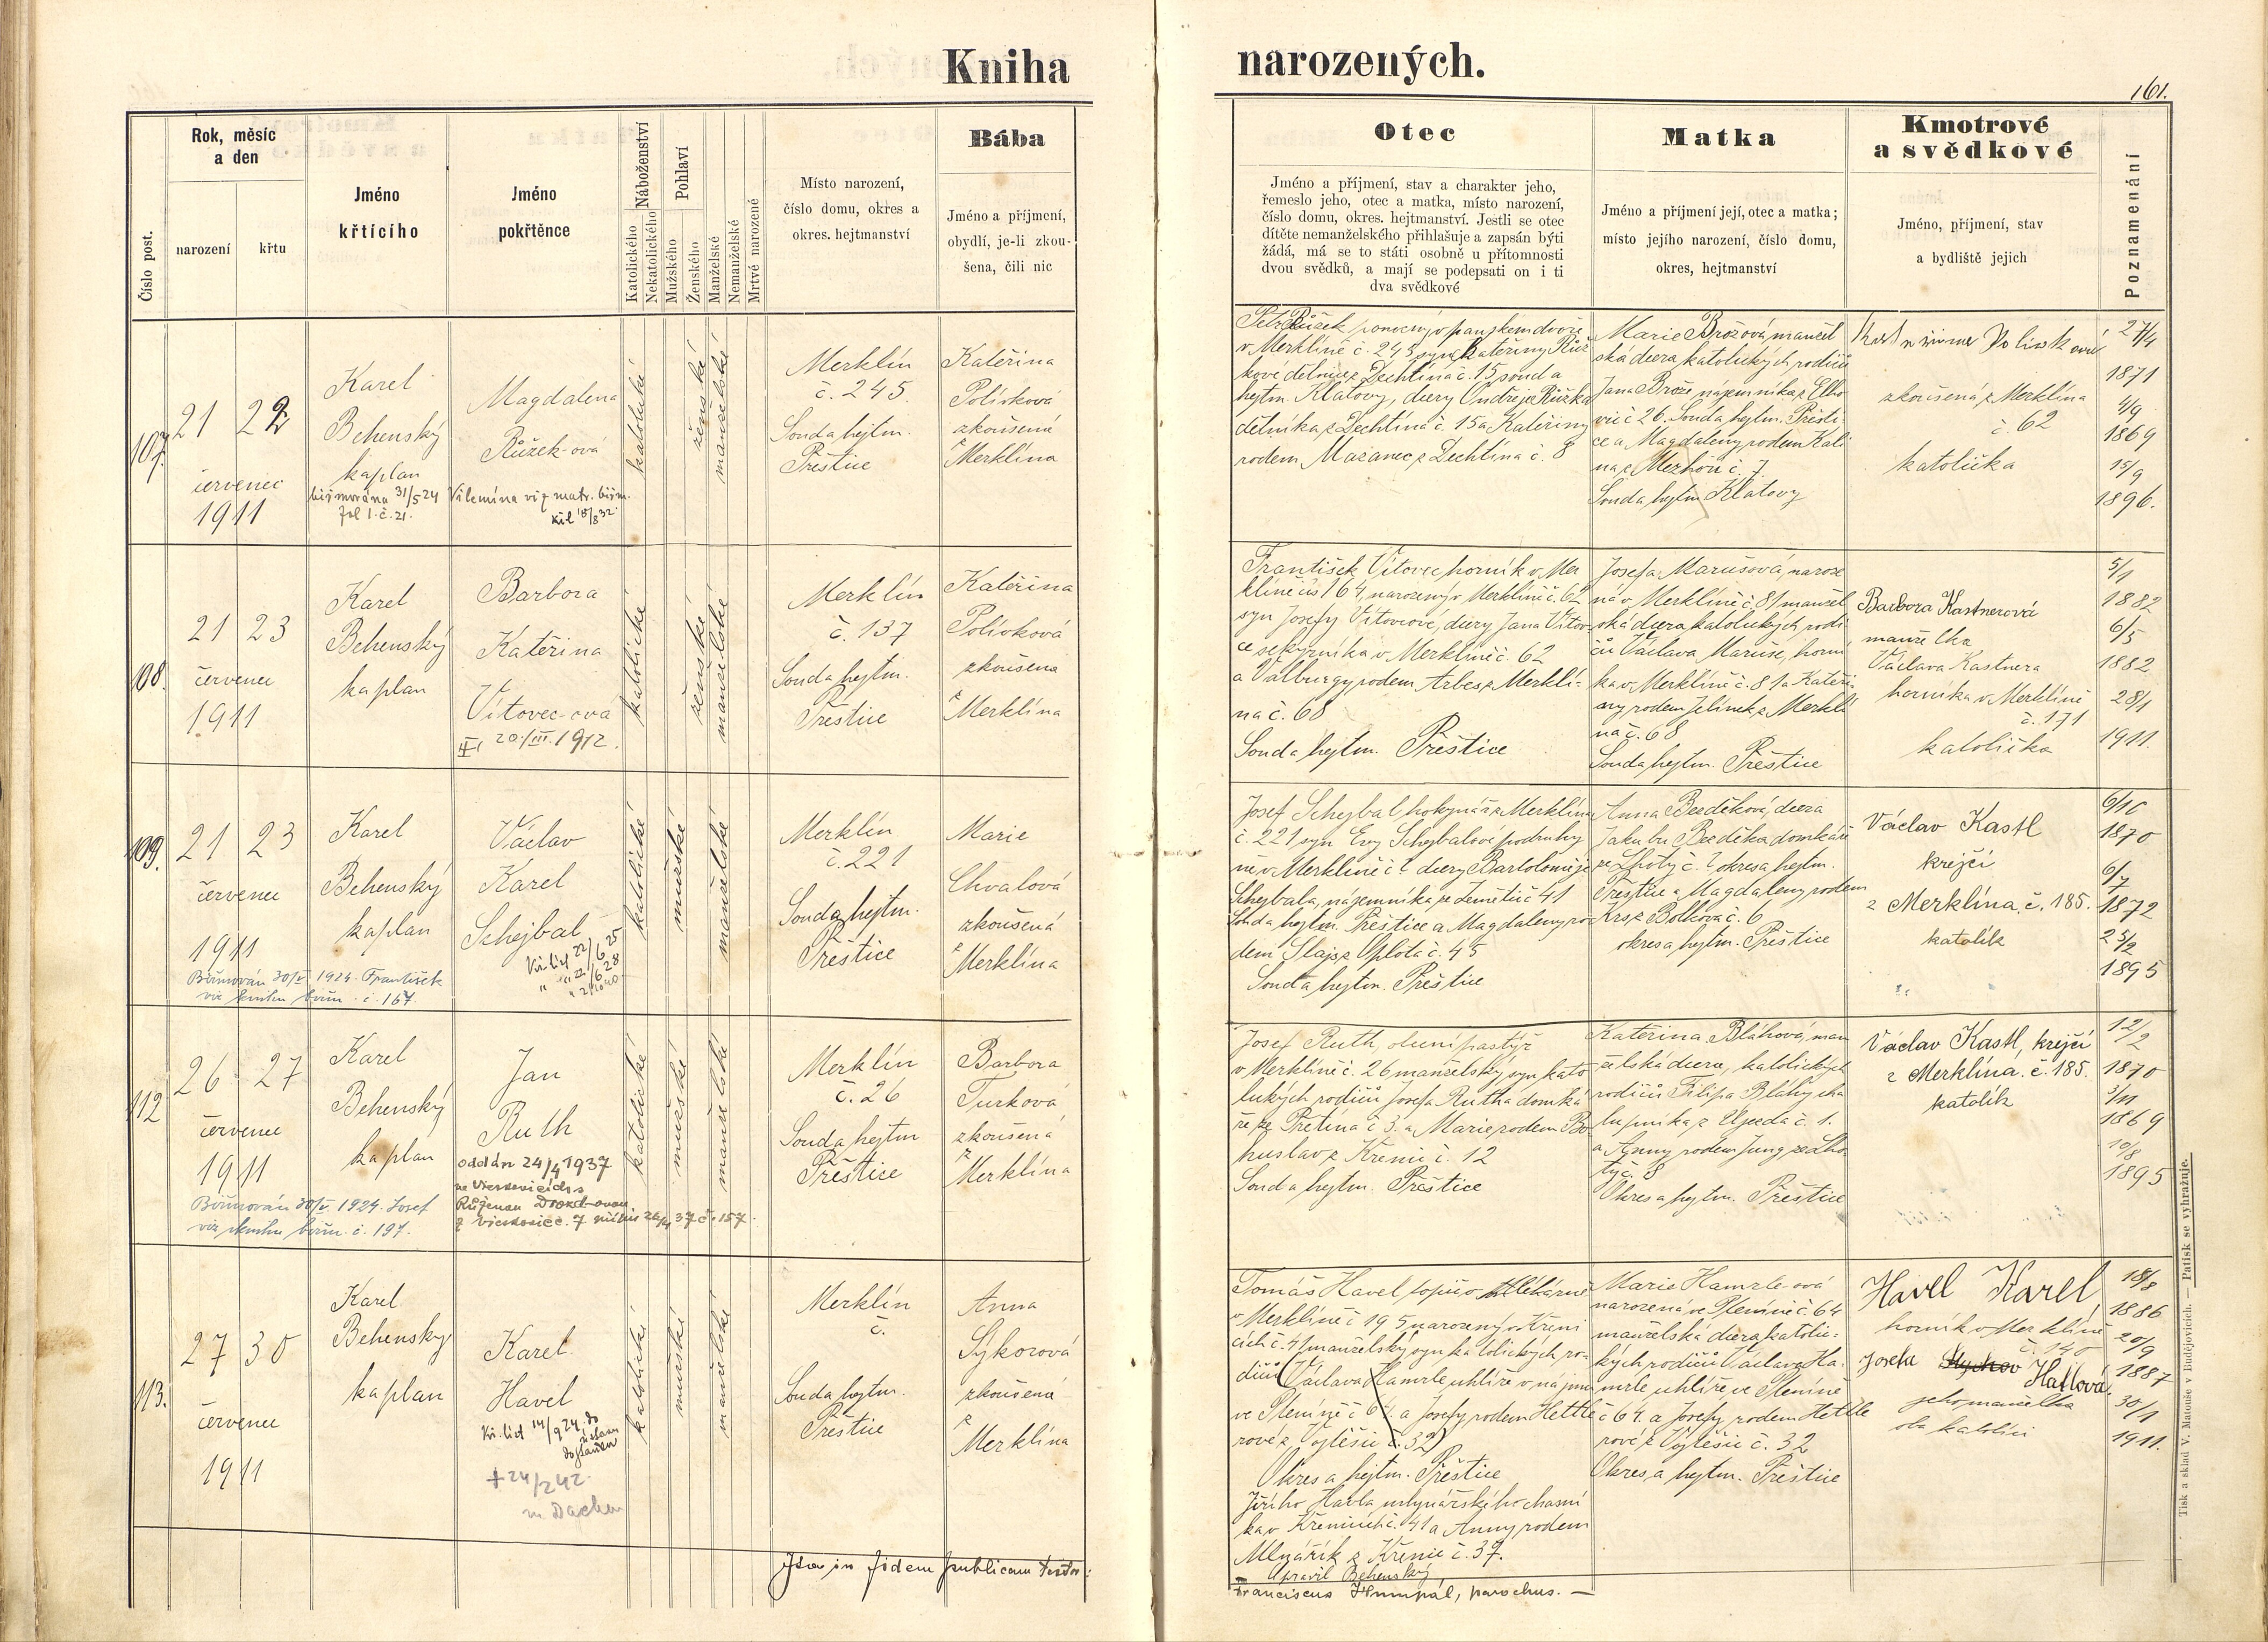 Kniha narozených.
161.
Číslo post.
Rok, měsíc
a den
narození
křtu
Jméno
křtícího
Jméno
pokřtěnce
Náboženství
Katolického
Nekatolického
Pohlaví
Mužského
Ženského
Manželské
Nemanželské
Mrtvé narozené
Místo narození,
číslo domu, okres a
okres. hejtmanství
Bába
Jméno a příjmení,
obydlí, je-li zkou-
šena, čili nic
Otec
Jméno a příjmení, stav a charakter jeho,
řemeslo jeho, otec a matka, místo narození,
číslo domu, okres. hejtmanství. Jestli se otec
dítěte nemanželského přihlašuje a zapsán býti
žádá, má se to státi osobně u přítomnosti
dvou svědků, a mají se podepsati on i ti
dva svědkové
Matka
Jméno a příjmení její, otec a matka;
místo jejího narození, číslo domu,
okres, hejtmanství
Kmotrové
a svědkové
Jméno, příjmení, stav
a bydliště jejich
Poznamenání
107.
21 22
červenec
1911
Karel
Behenský
kaplan
biřmována 31/5 24
fol 1. č. 21.
Magdalena
Růžek-ová
Vilemína viz matr. biřm.
katolické
ženské
manželské
Merklín
č. 245.
Soud a hejtm.
Přeštice
Kateřina
Polívková
zkoušená
z Merklína
Petr Růžek ponocný v panském dvoře
v Merklíně č. 245 syn Kateřiny Růž
kové dělnice z Dechtína č. 15 soud a
hejtm. Klatovy, dcery Ondřeje Růžka
dělníka z Dechtína č. 15 a Kateřiny
rodem Mazanec z Dechtína č. 8
Marie Brožová, manžel
ská dcera katolických rodičů
Jana Brože nájemníka z Elho
vic č. 26. Soud a hejtm. Přešti
ce a Magdaleny rodem Kali
na z Mezhoří č. 7.
Soud a hejtm Klatovy
Kateřina Polívková
zkoušená z Merklína
č. 62
katolička
27/4
1871
4/9
1869
15/9
1896.
108.
21 23
červenec
1911
Karel
Behenský
kaplan
Barbora
Kateřina
Vítovec-ová
20./III. 1912.
katolické
ženské
manželské
Merklín
č. 137
Soud a hejtm.
Přeštice
Kateřina
Polívková
zkoušena
z Merklína
František Vítovec, horník v Mer
klíně čís 164, narozený v Merklíně č. 62
syn Josefy Vítovcové, dcery Jana Vítov
ce sekyrníka v Merklíně č. 62
a Valburgy rodem Arbes z Merklí-
na č. 68
Soud a hejtm. Přeštice
Josefa Marušová, naroze
ná v Merklíně č. 81 manžel
ská dcera katolických rodi
čů Václava Maruše, horní
ka v Merklíně č. 81 a Kateři
ny rodem Jelínek z Merklí
na č. 68
Soud a hejtm. Přeštice
Barbora Kastnerová
manželka
Václava Kastnera
horníka v Merklíně
č. 171
katolička
5/1
1882
6/5
1882
28/1
1911.
109.
21 23
červenec
1911
Biřmován 30/V 1924. František
viz knihu biřm. č. 167.
Karel
Behenský
kaplan
Václav
Karel
Schejbal
Kř. list 22/6 25
" 22/6 28
katolické
mužské
manželské
Merklín
č. 221
Soud a hejtm.
Přeštice
Marie
Chvalová
zkoušená
z Merklína
Josef Schejbal, hokynář z Merklína
č. 221 syn Evy Schejbalové podruhy
ně v Merklíně č ? dcery Bartoloměje
Schejbala, nájemníka ze Zemětic č 41
Soud a hejtm. Přeštice a Magdaleny ro
dem Slajs z Oplota č. 45
Soud a hejtm. Přeštice
Anna Bezděková, dcera
Jakuba Bezděka domkáře
ze Lhoty č. ? okres a hejtm.
Přeštice a Magdaleny rodem
Krs z Bolkova č. 6
okres a hejtm. Přeštice
Václav Kastl
krejčí
z Merklína č. 185.
katolík
1870
6/7
1872
25/2
1895
112
26 27
červenec
1911
Biřmován 30/V. 1924. Josef
viz knihu biřm. č. 197.
Karel
Behenský
kaplan
Jan
Ruth
oddán 24/4 1937
ve Vieskovicích s
Růženou
z Vieskovic č. 7 26/4 37 č. 157.
katolické
mužské
manželské
Merklín
č. 26
Soud a hejtm
Přeštice
Barbora
Turková
zkoušená
z Merklína
Josef Ruth, obecní pastýř
v Merklíně č. 26 manželský syn kato
lických rodičů Josefa Rutha domká
ře ze Přetína č 3. a Marie rodem Bo
huslav z Křenic č. 12
Soud a hejtm. Přeštice
Kateřina Bláhová, man
želská dcera, katolických
rodičů Filipa Bláhy cha
lupníka z Újezda č. 1.
a Anny rodem Jung ze Lho
ty č. 8
Okres a hejtm. Přeštice
Václav Kastl, krejčí
z Merklína. č. 185.
katolík
12/2
1870
3/11
1869
10/8
1895
113.
27 30
červenec
1911
Karel
Behenský
kaplan
Karel
Havel
Kř. list 14/9 24.
+ 24/2 42.
v Dachau
katolické
mužské
manželské
Merklín
č.
Soud a hejtm.
Přeštice
Anna
Sýkorová
zkoušená
z Merklína
Tomáš Havel, topič v mlékárně
v Merklíně č 195 narozený v Křeni
cích č. 41 manželský syn katolických ro-
dičů (Václava Hamrle uhlíře v nájmu
ve Stemíně č 64. a Josefy rodem Hettle
rové z Vojtěšic č. 32)
Okres a hejtm. Přeštice
Jiřího Havla mlynářského chasní
ka v Křenicích č. 41 a Anny rodem
Mlnářík z Křenic č. 37.
Opravil Behenský
Marie Hamrle-ová
narozená ve Stemíně č. 64
manželská dcera katolic-
kých rodičů Václava Ha-
mrle uhlíře ve Stemíně
č 64. a Josefy rodem Hettle
rové z Vojtěšic č. 32
Okres a hejtm. Přeštice
Havel Karel
horník v Merklíně
č. 140
Josefa Havlová,
jeho manželka
oba katolíci
18/8
1886
20/9
1887
30/1
1911.
Ita in fidem publicam testor:
Franciscus Humpál, parochus. —
Tisk a sklad V. Matouše v Budějovicích. — Patisk se vyhražuje.